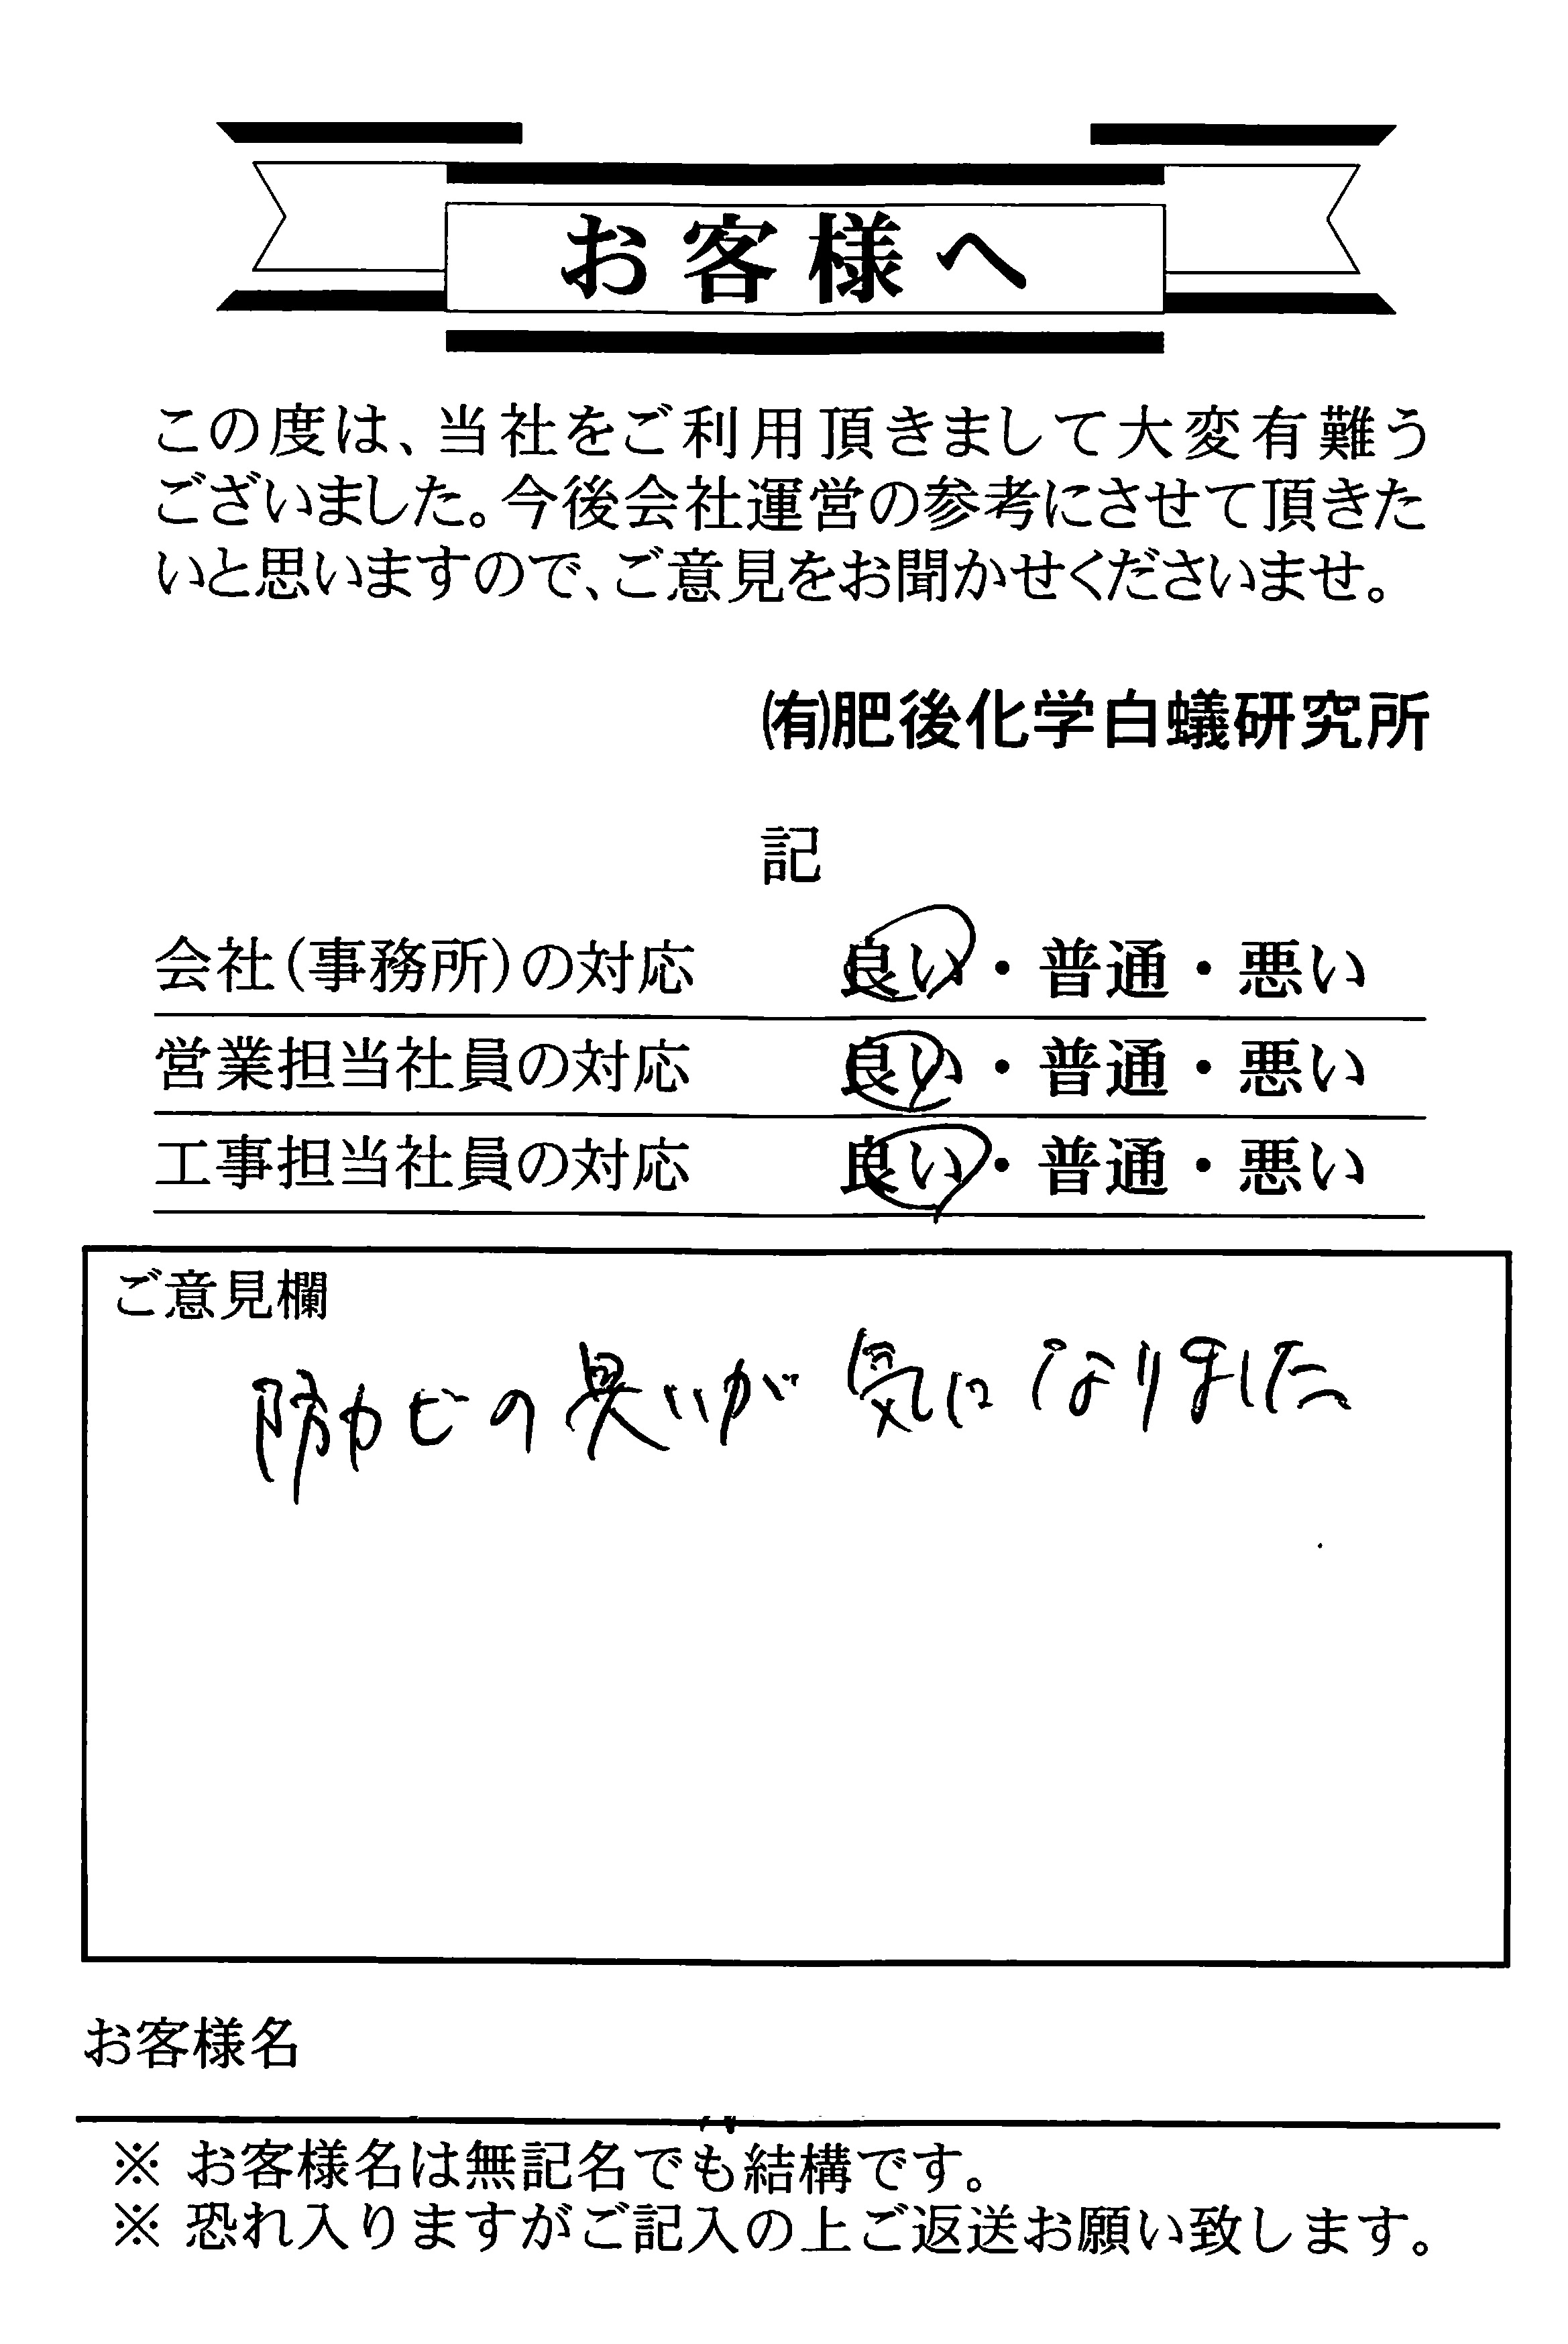 お客様へ
この度は、当社をご利用頂きまして大変有難う
ございました。今後会社運営の参考にさせて頂きた
いと思いますので、ご意見をお聞かせくださいませ。
㈲肥後化学白蟻研究所
記
会社(事務所)の対応 良い・普通・悪い
営業担当社員の対応 良い・普通・悪い
工事担当社員の対応 良い・普通・悪い
ご意見欄
防カビの臭いが気になりました
お客様名
※ お客様名は無記名でも結構です。
※ 恐れ入りますがご記入の上ご返送お願い致します。